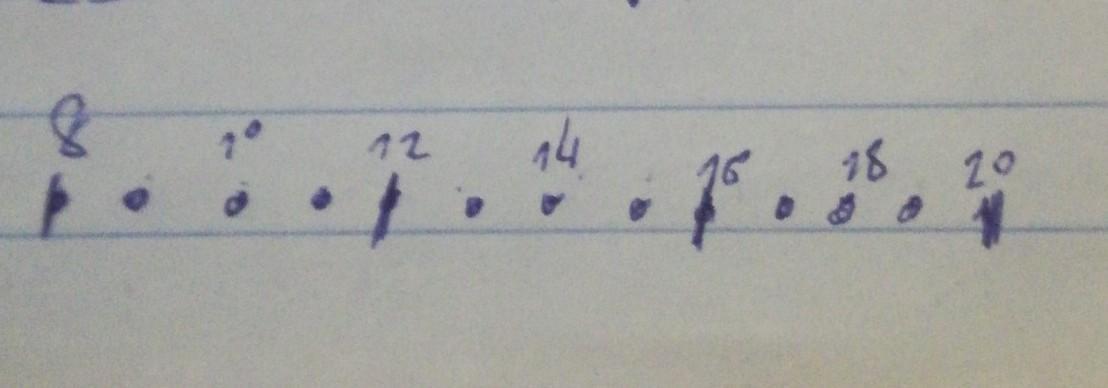 8 10 12 14 16 18 20